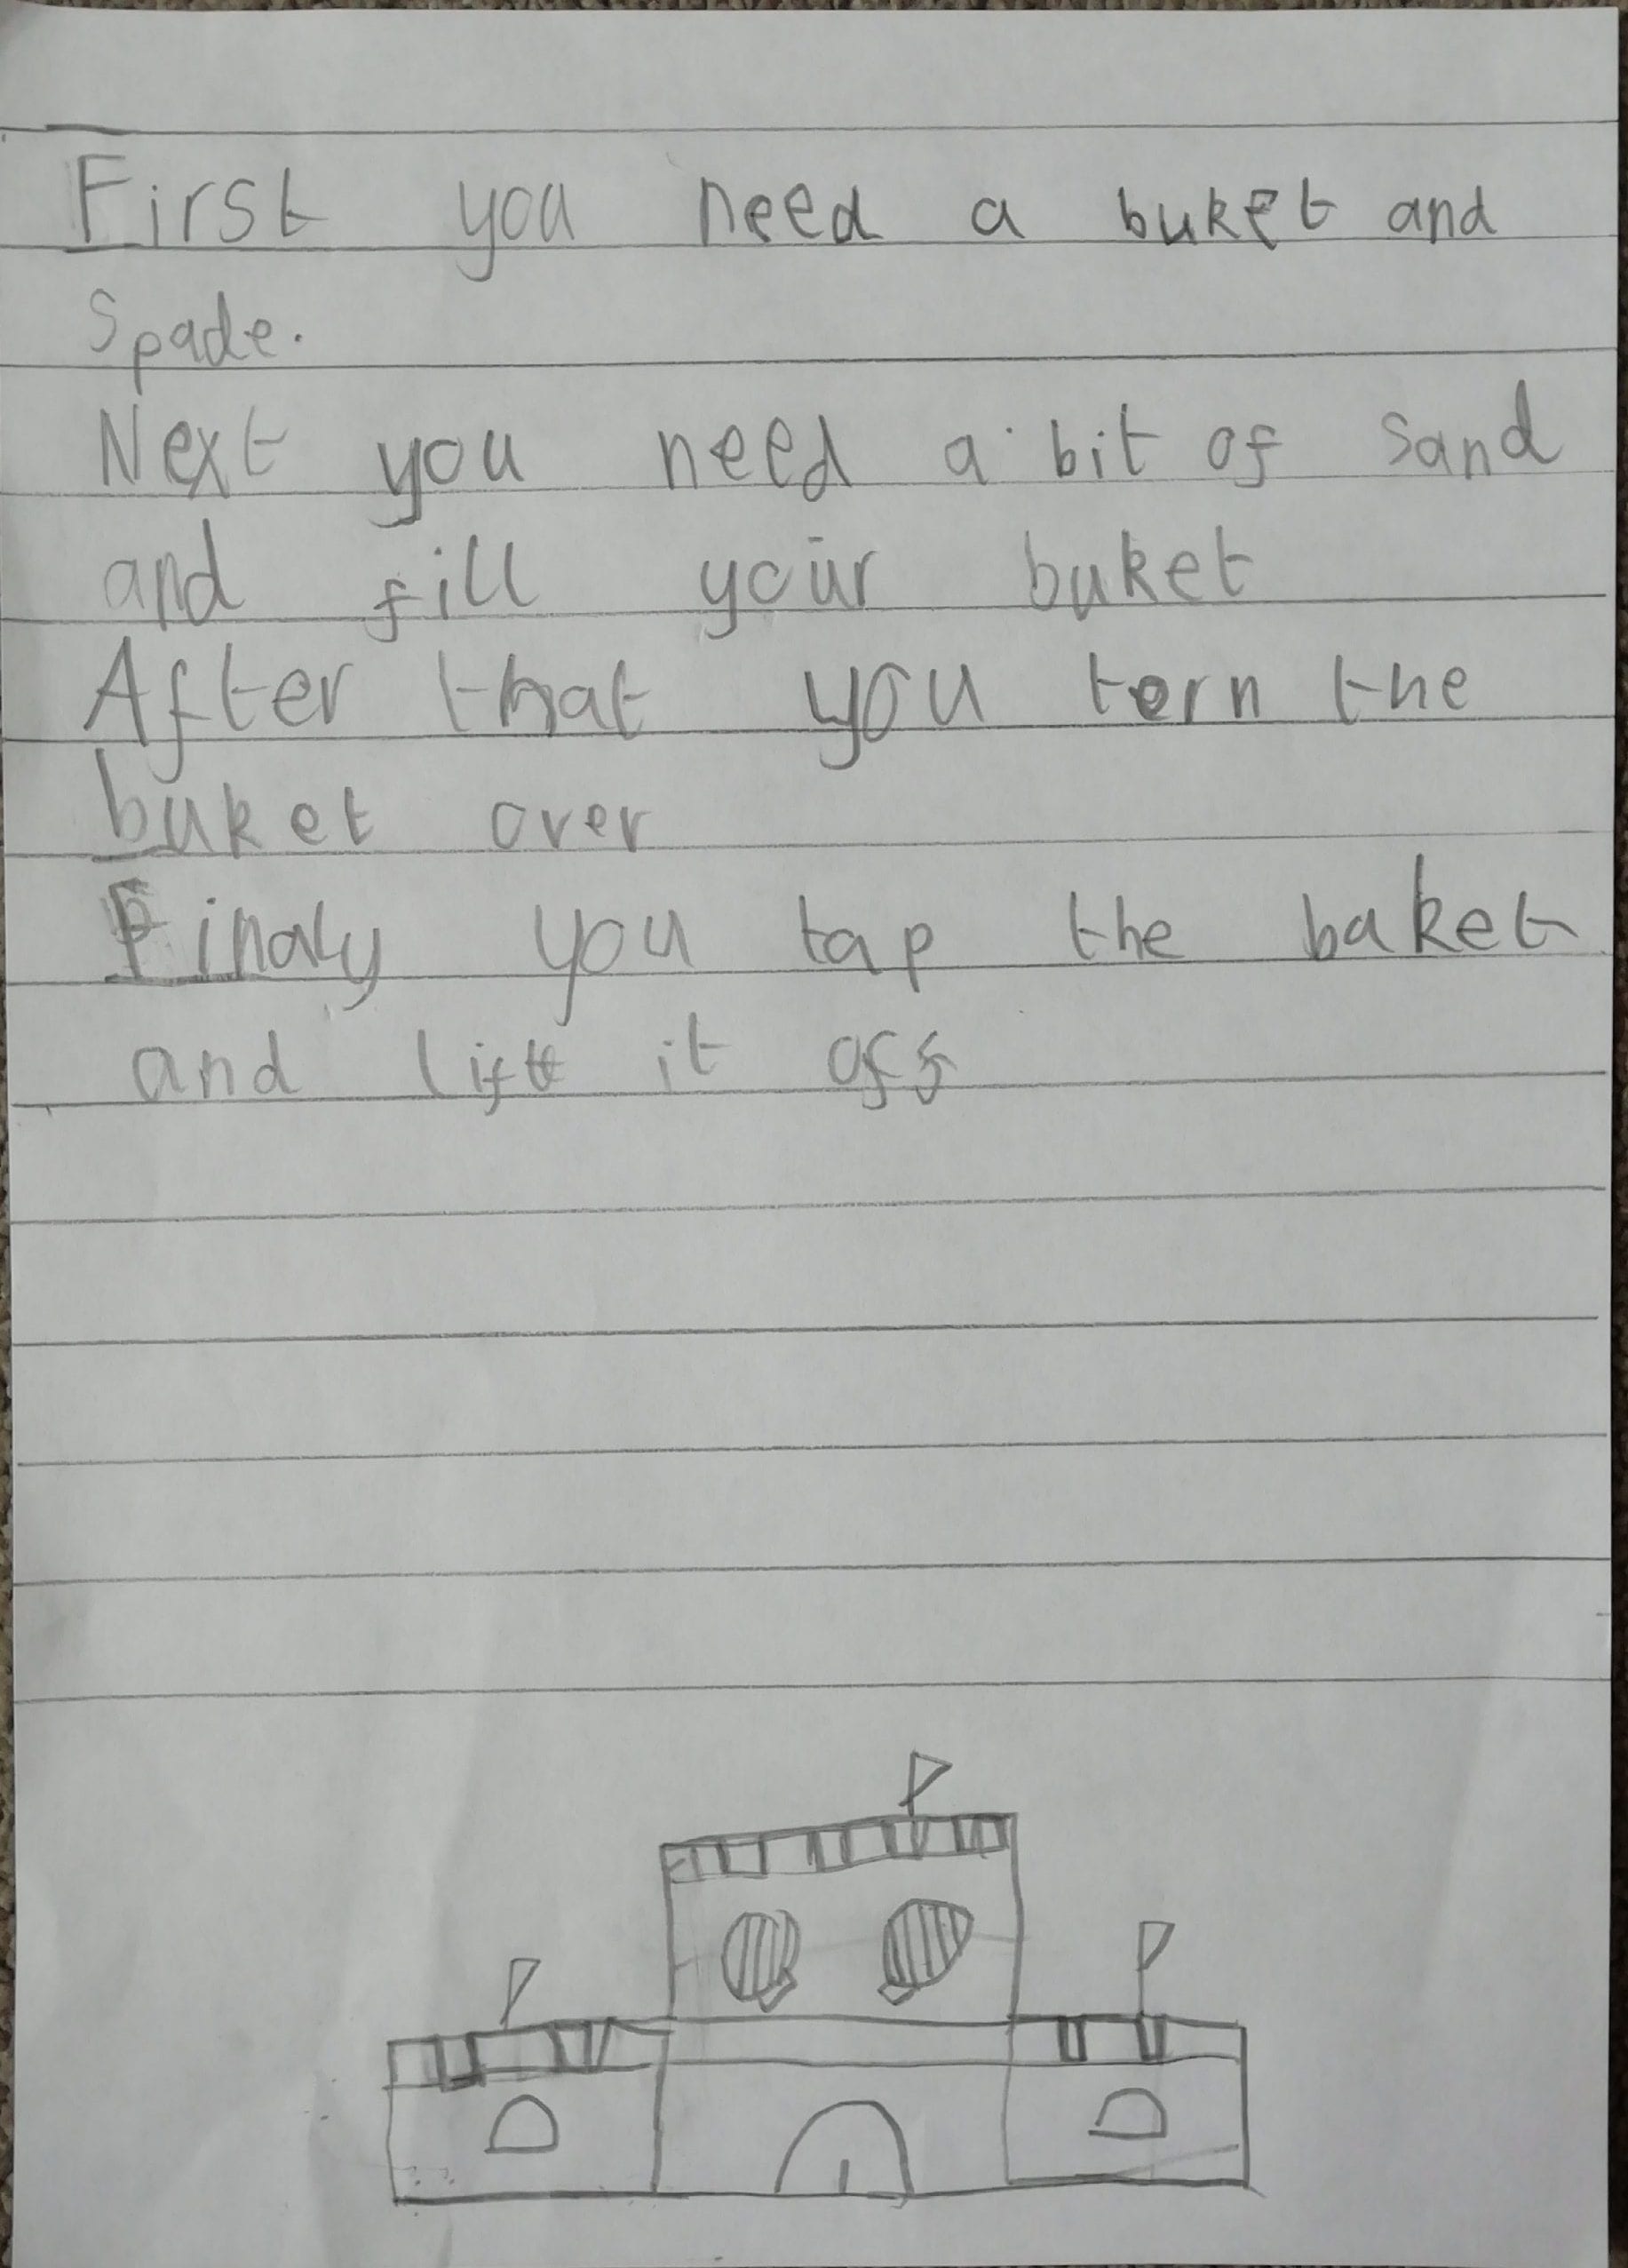 First you need a buket and
spade.
Next you need a bit of sand
and fill your buket
After that you tern the
buket over
Finaly you tap the baket
and lift it off